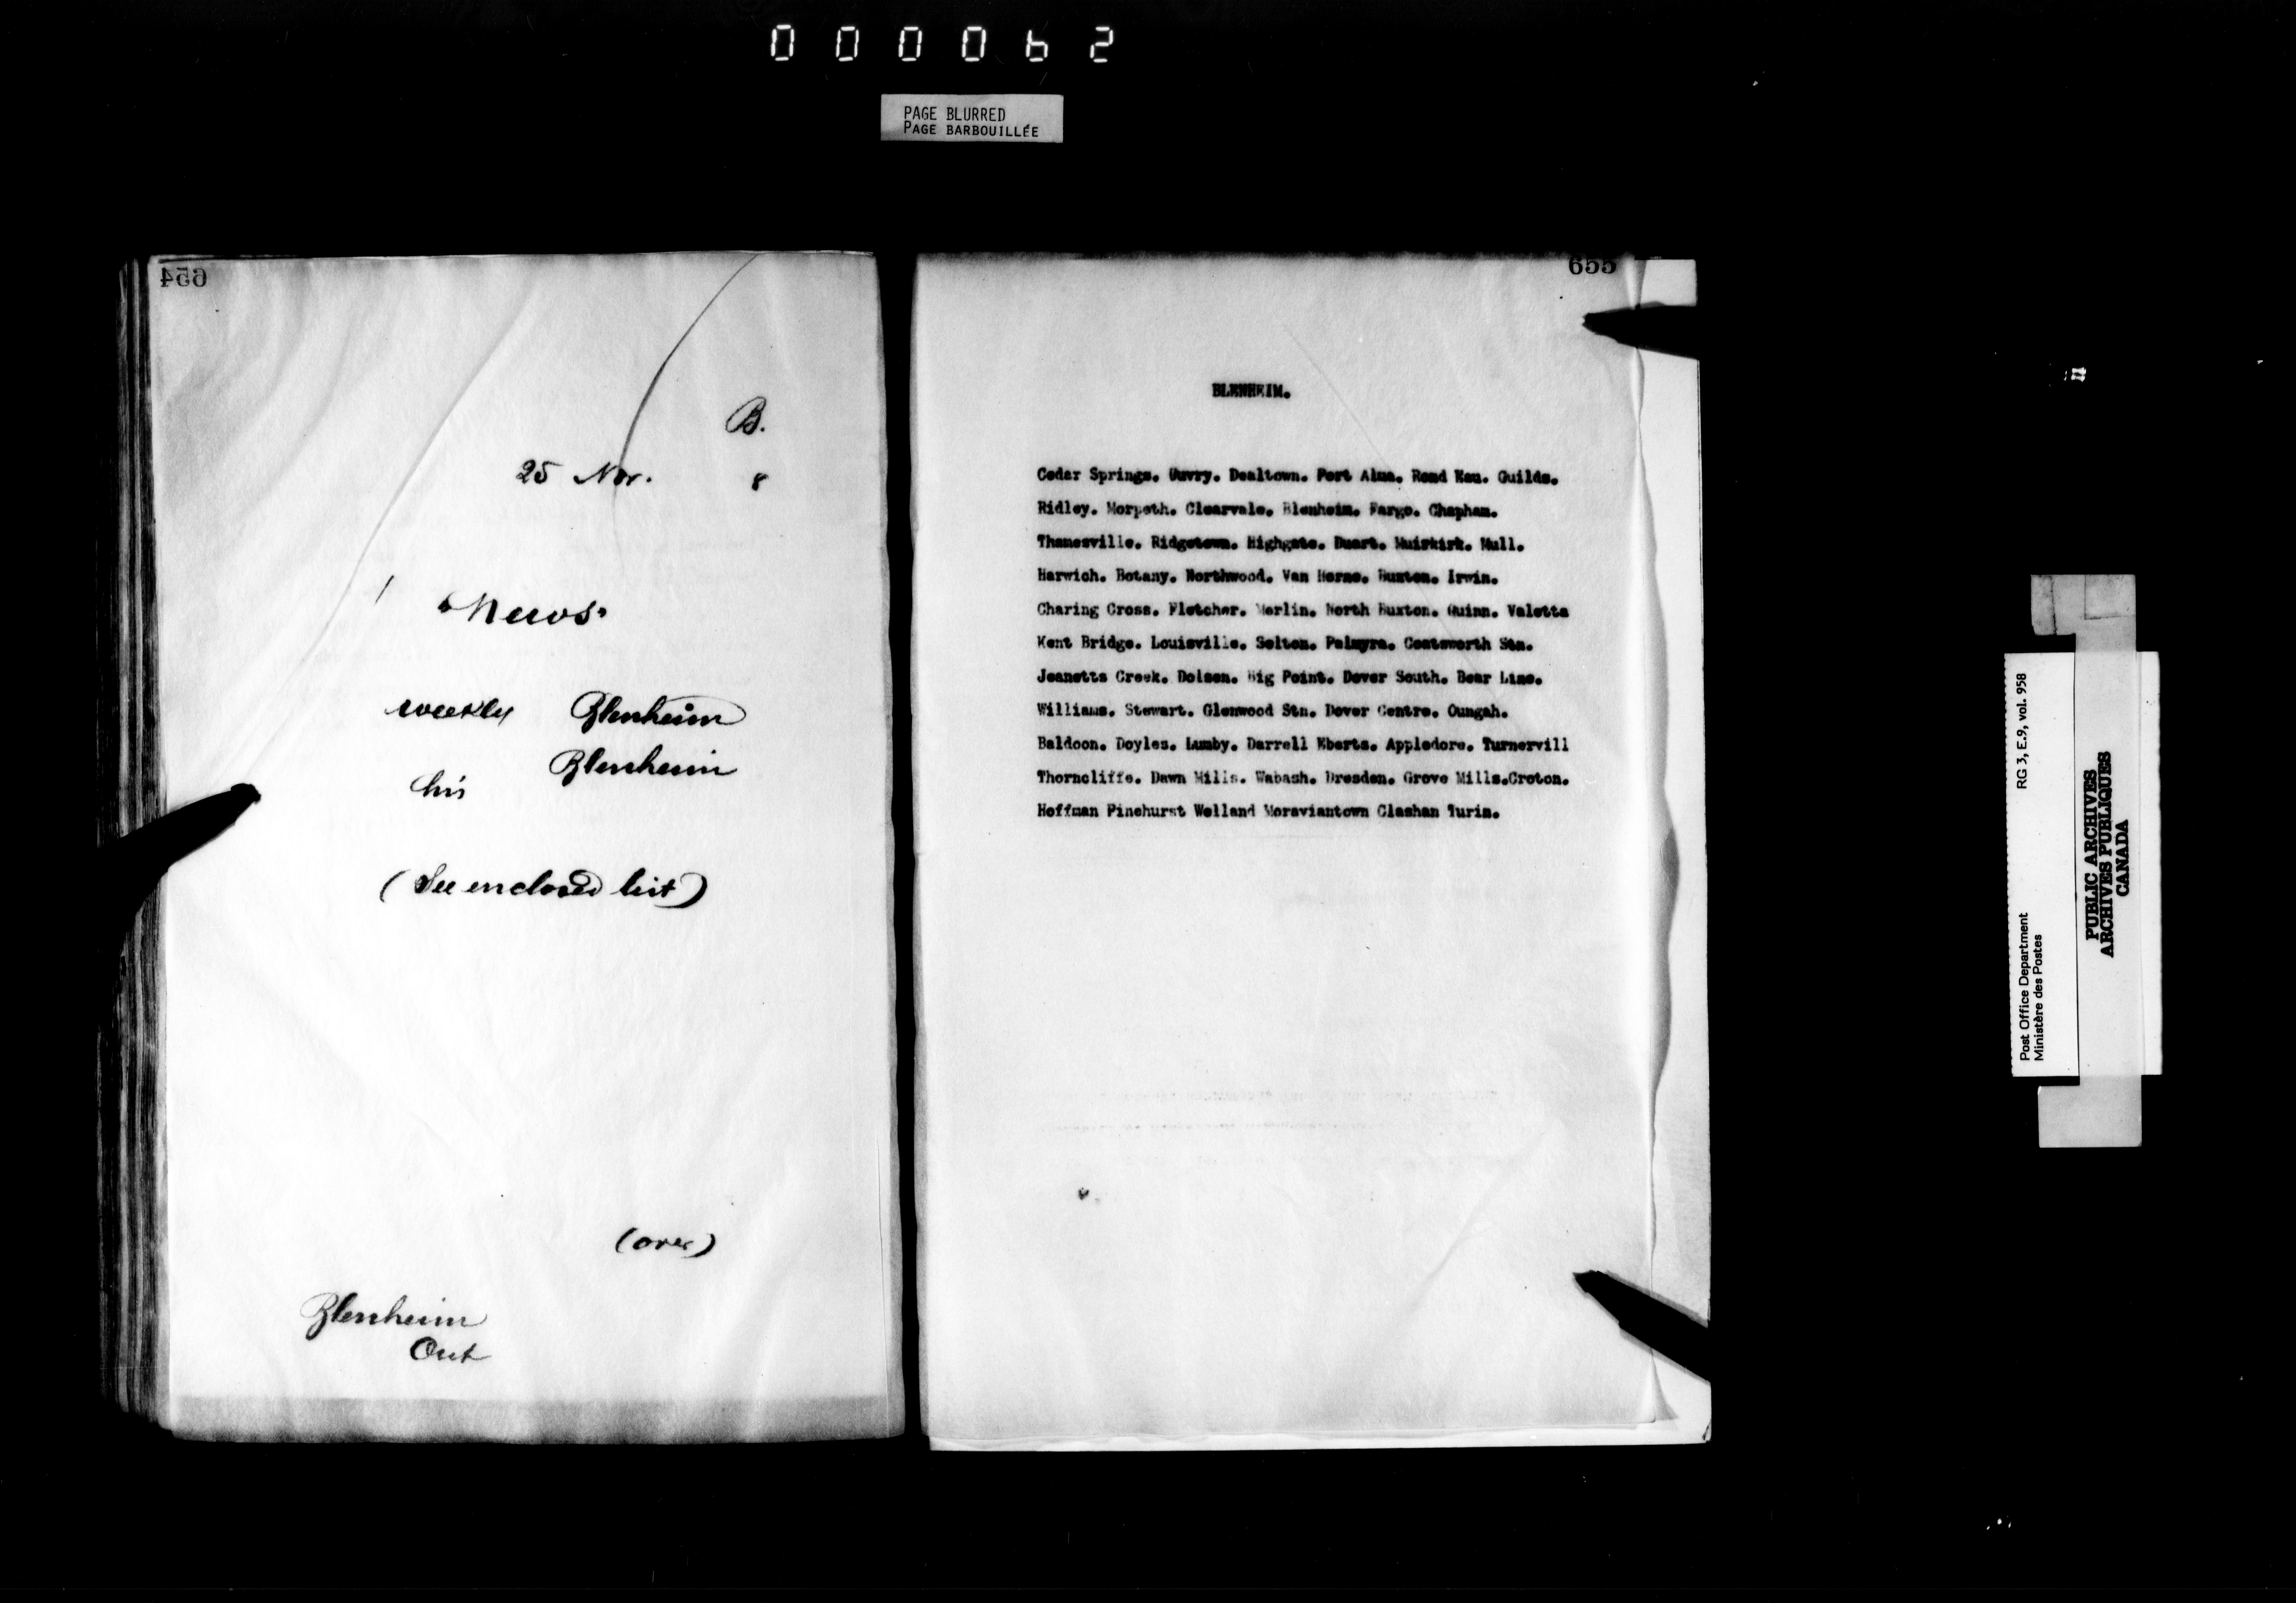 000062
PAGE BLURRED
PAGE BARBOUILLÉE
654
B.
25 Nov. 8
"News"
weekly Blenheim
Blenheim
his
(See enclosed list)
(over)
Blenheim
Ont
655
BLENHEIM.
Cedar Springs. Ouvry. Dealtown. Port Alma. Rond Eau. Guilds.
Ridley. Morpeth. Clearvale. Blenheim. Fargo. Chapham.
Thamesville. Ridgetown. Highgate. Duart. Muirkirk. Mull.
Harwich. Botany. Northwood. Van Horne. Buxton. Irwin.
Charing Cross. Fletcher. Merlin. North Buxton. Quinn. Valetta
Kent Bridge. Louisville. Selton. Palmyra. Coatsworth Stn.
Jeanetts Creek. Dolsen. Big Point. Dover South. Bear Line.
Williams. Stewart. Glenwood Stn. Dover Centre. Oungah.
Baldoon. Doyles. Lumby. Darrell Eberts. Appledore. Turnervill
Thorncliffe. Dawn Mills. Wabash. Dresden. Grove Mills.Croton.
Hoffman Pinehurst Welland Moraviantown Clashan Turin.
Post Office Department
Ministère des Postes
RG 3, E.9, vol. 958
PUBLIC ARCHIVES
ARCHIVES PUBLIQUES
CANADA